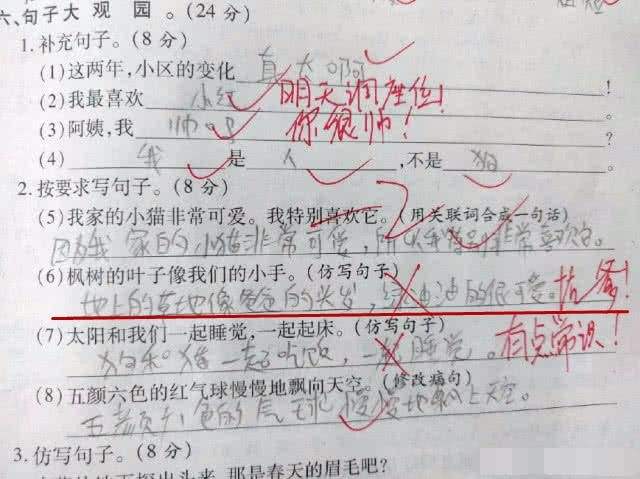 六、句子大观园。(24分)
1.补充句子。(8分)
(1)这两年,小区的变化 真大啊 !
(2)我最喜欢 小红 。 明天调座位!
(3)阿姨,我 帅吗 ? 你很帅!
(4) 我 是 人 ,不是 狗 。
2.按要求写句子。(8分)
(5)我家的小猫非常可爱。我特别喜欢它。(用关联词合成一句话)
因为我家的小猫非常可爱,所以我特别非常喜欢它。
(6)枫树的叶子像我们的小手。(仿写句子)
地上的草地像爸爸的头发,绿油油的很可爱。 坑爹!
(7)太阳和我们一起睡觉,一起起床。(仿写句子)
狗和猪一起吃饭,一起睡觉。 有点常识!
(8)五颜六色的红气球慢慢地飘向天空。(修改病句)
五颜六色的气球慢慢地飘上天空。
3.仿写句子。(8分)
探出头来,那是春天的眉毛吧?